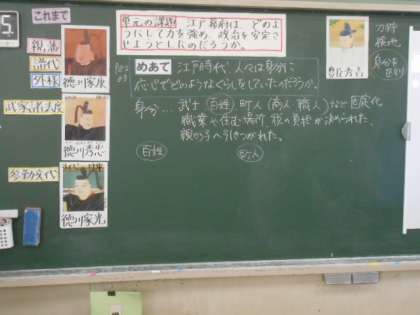 これまで
親藩
譜代
外様
徳川家康
武家諸法度
徳川秀忠
参勤交代
徳川家光
単元の課題 江戸幕府は、どのよ
うにして力を強め、政治を安定さ
せようとしたのだろうか。
めあて 江戸時代、人々は身分に
応じてどのようなくらしをしていたのだろうか。
身分…武士 百姓 町人(商人 職人)など 固定化
職業や住む場所
親の子へうけつがれた。
百姓
町人
豊臣秀吉
刀狩
検地